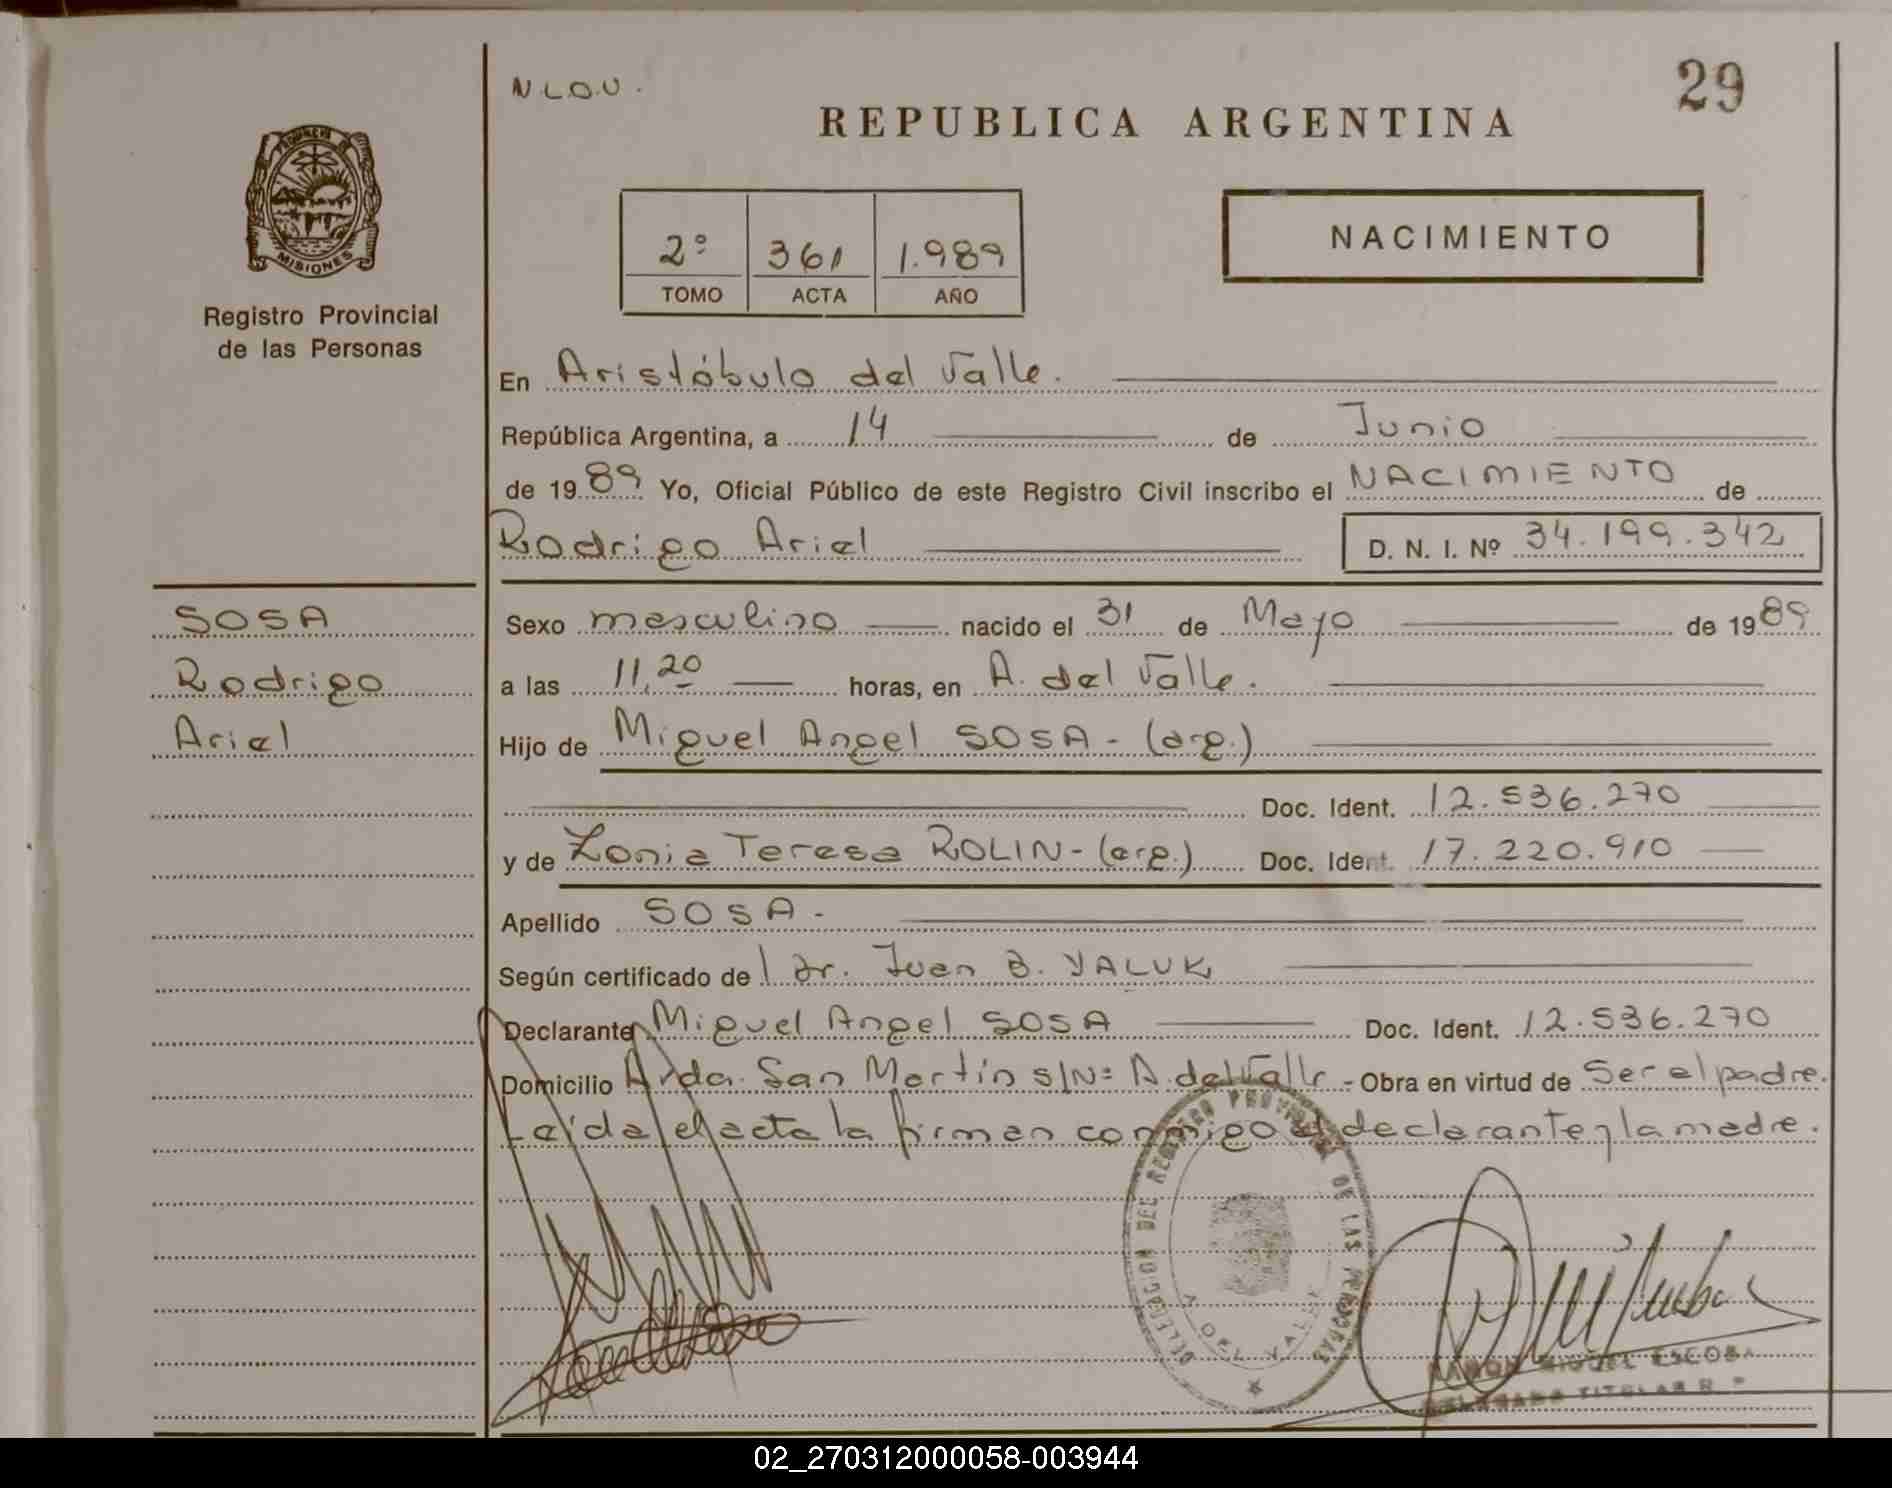 N L O U .
29
REPUBLICA ARGENTINA
PROVINCIA DE
MISIONES
Registro Provincial
de las Personas
2º 361 1.989
TOMO ACTA AÑO
NACIMIENTO
En Aristóbulo del Valle.
República Argentina, a 14 de Junio
de 1989 Yo, Oficial Público de este Registro Civil inscribo el NACIMIENTO de
Rodrigo Ariel D. N. I. Nº 34.199.342
SOSA
Rodrigo
Ariel
Sexo masculino nacido el 31 de Mayo de 1989
a las 11,20 horas, en A. del Valle.
Hijo de Miguel Angel SOSA - (arg.)
Doc. Ident. 12.536.270
y de Zonia Teresa ROLIN - (arg.) Doc. Ident. 17.220.910
Apellido SOSA -
Según certificado del Dr. Juan B. YALUK
Declarante Miguel Angel SOSA Doc. Ident. 12.536.270
Domicilio Avda. San Martín s/Nº A. del Valle - Obra en virtud de Ser el padre.
Leída el acta la firman conmigo el declarante y la madre.
DELEGACION DEL REGISTRO PROVINCIAL DE LAS PERSONAS
A. DEL VALLE
RAMON MIGUEL ESCOBA
DELEGADO TITULAR R. P.
02_270312000058-003944